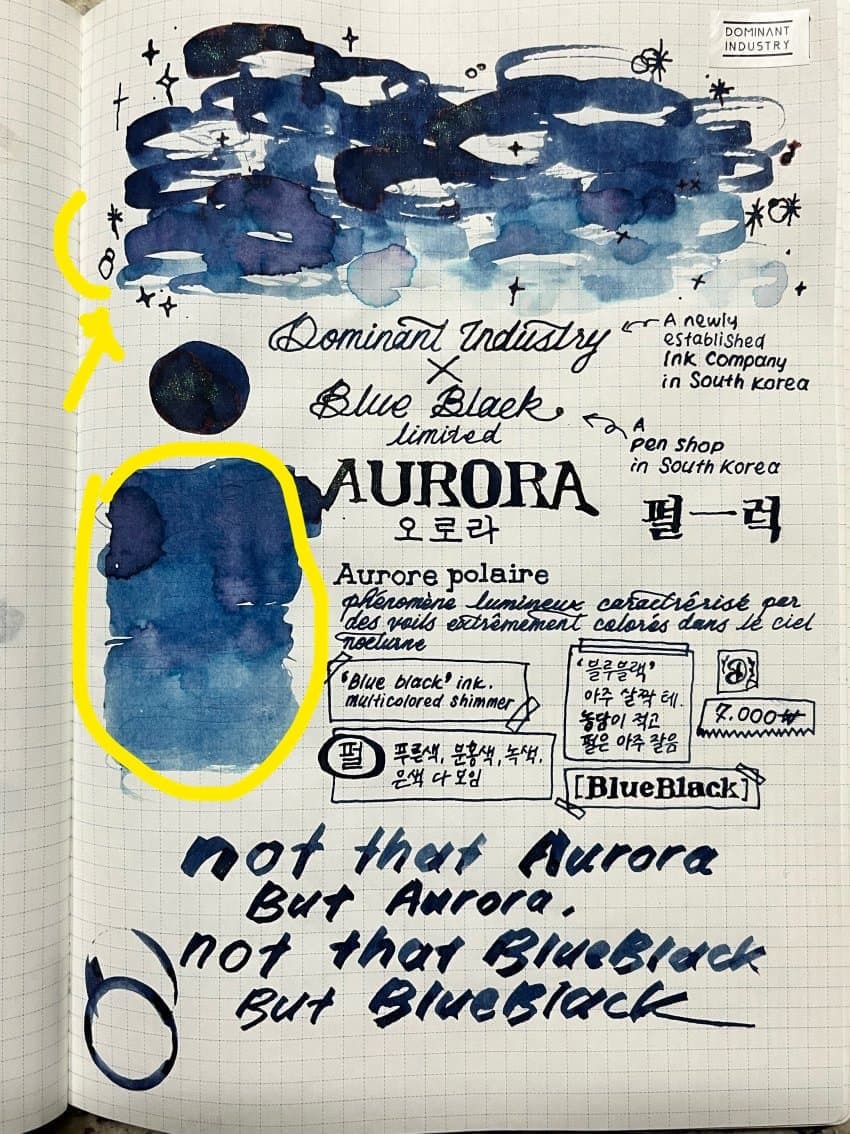 DOMINANT
INDUSTRY
Dominant Industry
A newly
established
Ink Company
in South Korea
×
Blue Black
limited
A
pen shop
in South Korea
AURORA
오로라
펄一럭
Aurore polaire
phénomène lumineux caractrérisé par
des voils extrêmement colorés dans le ciel
nocturne
'Blue black' ink.
multicolored shimmer
'블루블랙'
아주 살짝 테.
농담이 적고
펄은 아주 잘음
7.000₩
펄
푸른색, 분홍색, 녹색,
은색 다 모임
[BlueBlack]
not that Aurora
But Aurora.
not that BlueBlack
But BlueBlack